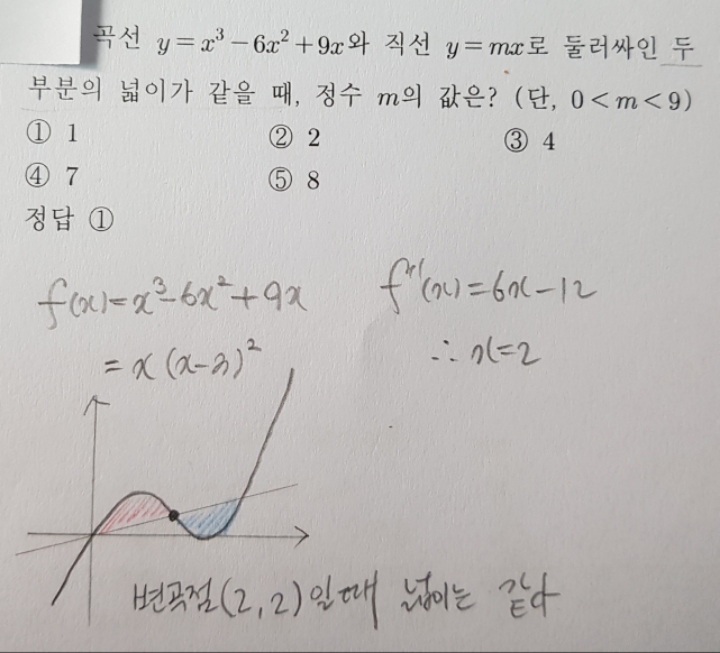 곡선 y=x³-6x²+9x와 직선 y=mx로 둘러싸인 두
부분의 넓이가 같을 때, 정수 m의 값은? (단, 0<m<9)
① 1 ② 2 ③ 4
④ 7 ⑤ 8
정답 ①
f(x)=x³-6x²+9x
=x(x-3)²
f''(x)=6x-12
∴ x=2
변곡점(2,2)일때 넓이는 같다